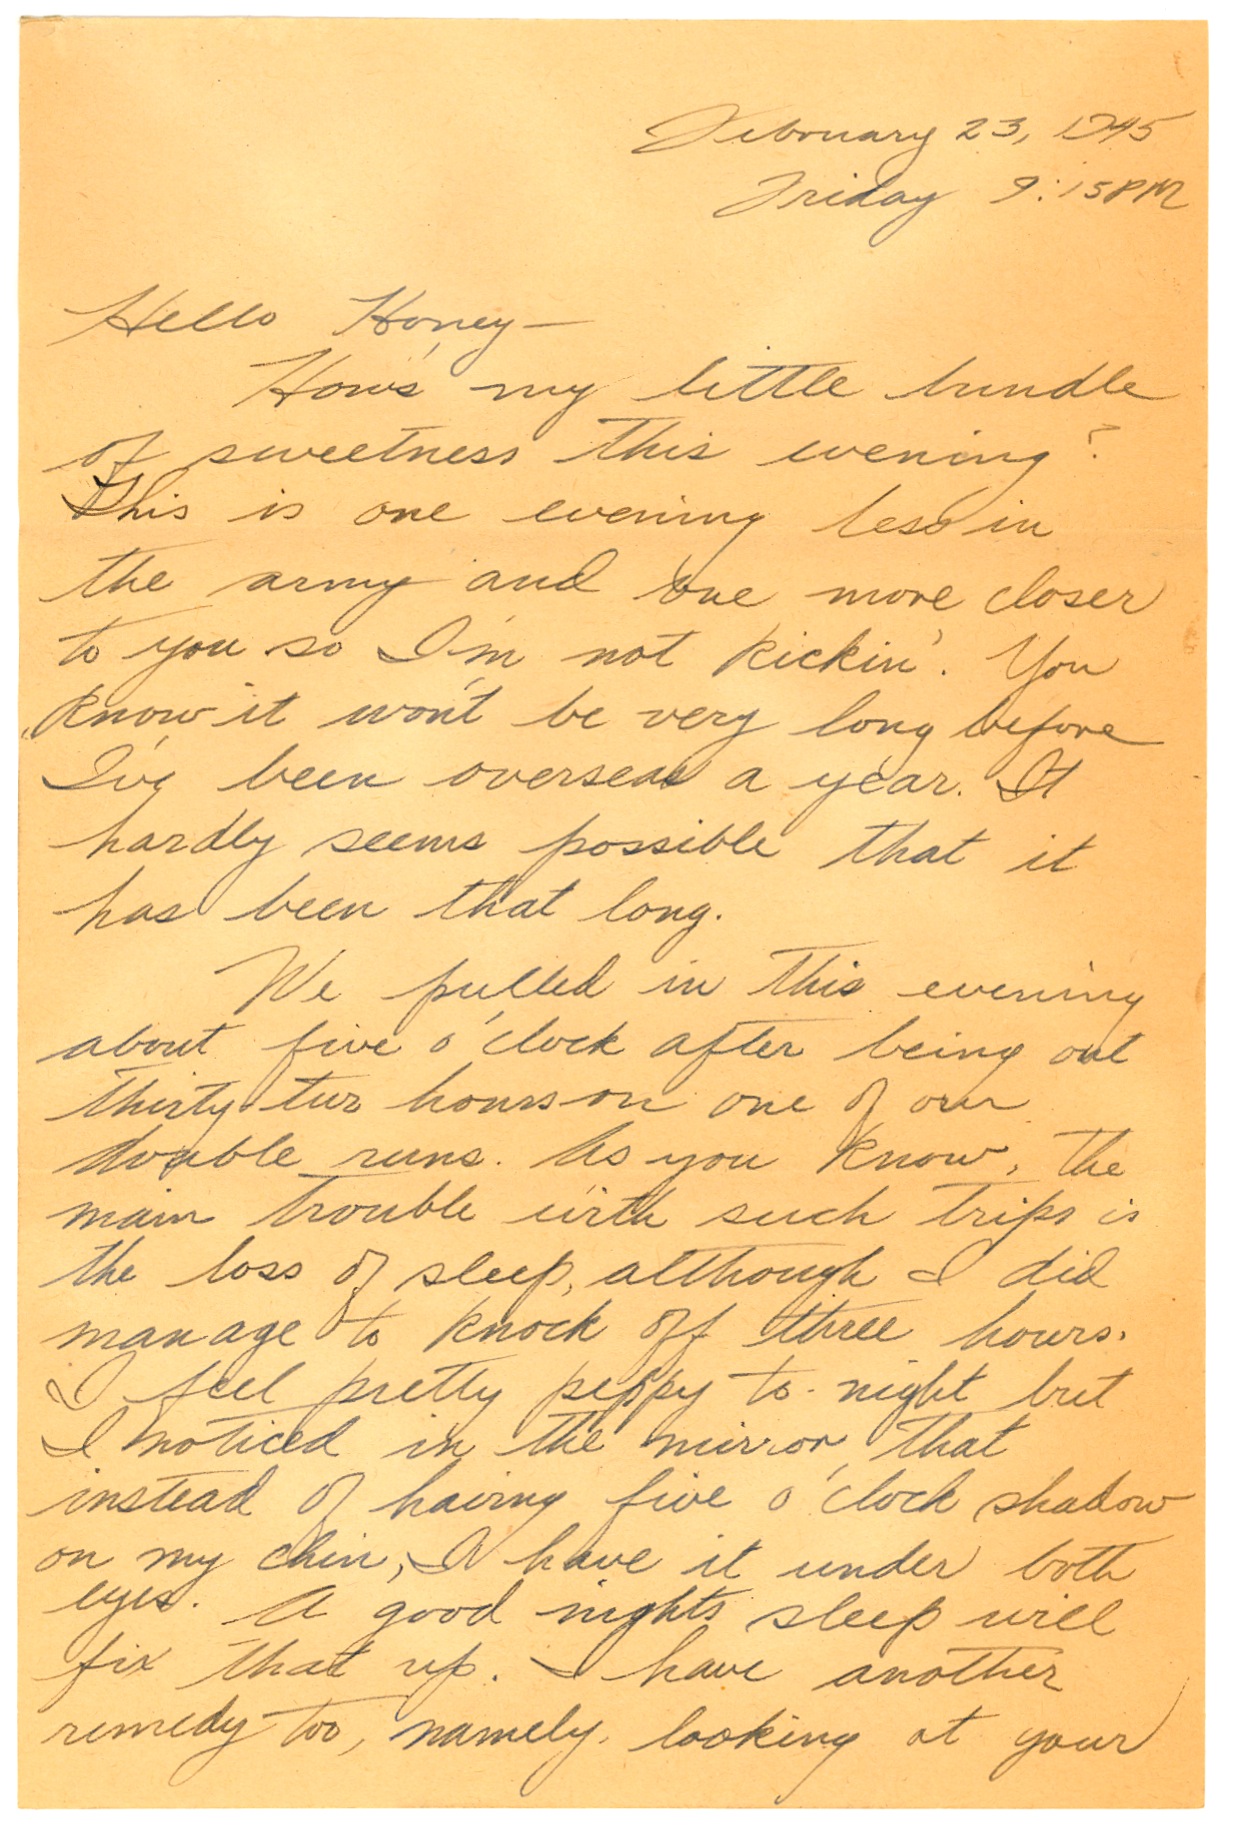 February 23, 1945
Friday 9:15PM
Hello Honey—
How's my little bundle
of sweetness this evening?
This is one evening less in
the army and one more closer
to you so I'm not kickin'. You
know it won't be very long before
I've been overseas a year. It
hardly seems possible that it
has been that long.
We pulled in this evening
about five o'clock after being out
thirty two hours on one of our
double runs. As you know, the
main trouble with such trips is
the loss of sleep, although I did
manage to knock off three hours.
I feel pretty peppy to-night but
I noticed in the mirror, that
instead of having five o'clock shadow
on my chin, I have it under both
eyes. A good nights sleep will
fix that up. I have another
remedy too, namely, looking at your